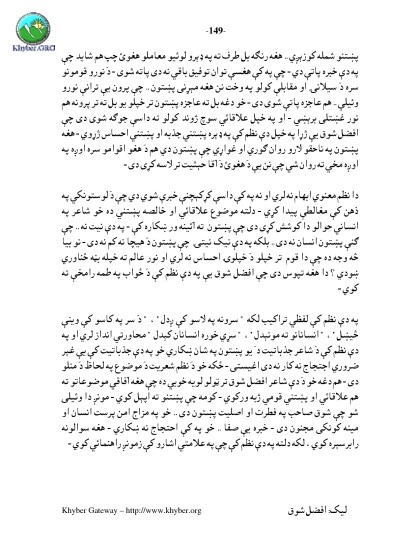 -149-
Khyber.ORG
پښتنو شمله کوزېږي.. هغه رنگه بل طرف ته په ډېرو لوئيو معاملو هغوئ چپ هم شايد چې
په دې خبره پاتې دي - چې په کې هغسې توان توفيق باقي نه دی پاته شوی - د نورو قومونو
سره د سيالۍ او مقابلې کولو په وخت نن هغه مېړنی پښتون.. چې پرون يې ترانې نورو
وئيلې. هم عاجزه پاتې شوی دی - خو دغه بل ته عاجزه پښتون تر خپلو يو بل ته تر پرونه هم
نور غښتلی برېښي - او په خپل علاقائي سوچ ژوند کولو ته داسې جوگه شوی دی چې
افضل شوق يې ژړا په خپل دې نظم کې په ډېره پښتني جذبه او پښتني احساس ژړوي - هغه
پښتون په ناحقو لارو روان گوري او غواړي چې پښتون دې هم د هغو اقوامو سره اوږه په
اوږه مخې ته روان شي چې نن يې د هغوئ د آقا حېثيت تر لاسه کړی دی-
دا نظم معنوي ابهام نه لري او نه په کې داسې کړکېچنې خبرې شوي دي چې د لوستونکي په
ذهن کې مغالطې پيدا کړي - دلته موضوع علاقائي او خالصه پښتني ده خو شاعر په
انساني حوالو دا کوشش کړی دی چې پښتون ته آئينه ور ښکاره کې - په دې نيت نه.. چې
گڼې پښتون انسان نه دی. بلکه په دې نيک نيتۍ چې پښتون د هيچا نه کم نه دی - نو بيا
څه وجه ده چې دا قوم تر خپلو د خپلوۍ احساس نه لري او نور عالم ته خپله بېه څناوري
ښودي؟ دا هغه تپوس دی چې افضل شوق يې په دې نظم کې د ځواب په طمه رامخې ته
کوي-
په دې نظم کې لفظي تراکيب لکه " سرونه په لاسو کې ږدل" ، " د سر په کاسو کې وينې
څښل" ، " انسانانو ته مونېدل" ، " سړي خوره انسانان کېدل" محاورتي انداز لري او په
دې نظم کې د شاعر جذباتيت د يو پښتون په شان ښکاري خو په دې جذباتيت کې يې غېر
ضروري احتجاج نه کار نه دی اغيستی - ځکه خو د نظم شعريت د موضوع په لحاظ د منلو
دی - هم دغه خو د دې شاعر افضل شوق تر ټولو لويه خوبي ده چې هغه آفاقي موضوعاتو ته
هم علاقائي او پښتني قومي ژبه ورکوي - کومه چې پښتنو ته اپېل کوي - مونږ دا وئيلی
شو چې شوق صاحب په فطرت او اصليت پښتون دی.. خو په مزاج امن پرست انسان او
مينه کونکی مجنون دی - خبره يې صفا .. خو په کې احتجاج نه ښکاري - هغه سوالونه
رابرسېره کوي. لکه دلته په دې نظم کې چې په علامتي اشارو کې زمونږ راهنمائي کوي-
Khyber Gateway – http://www.khyber.org
ليک: افضل شوق